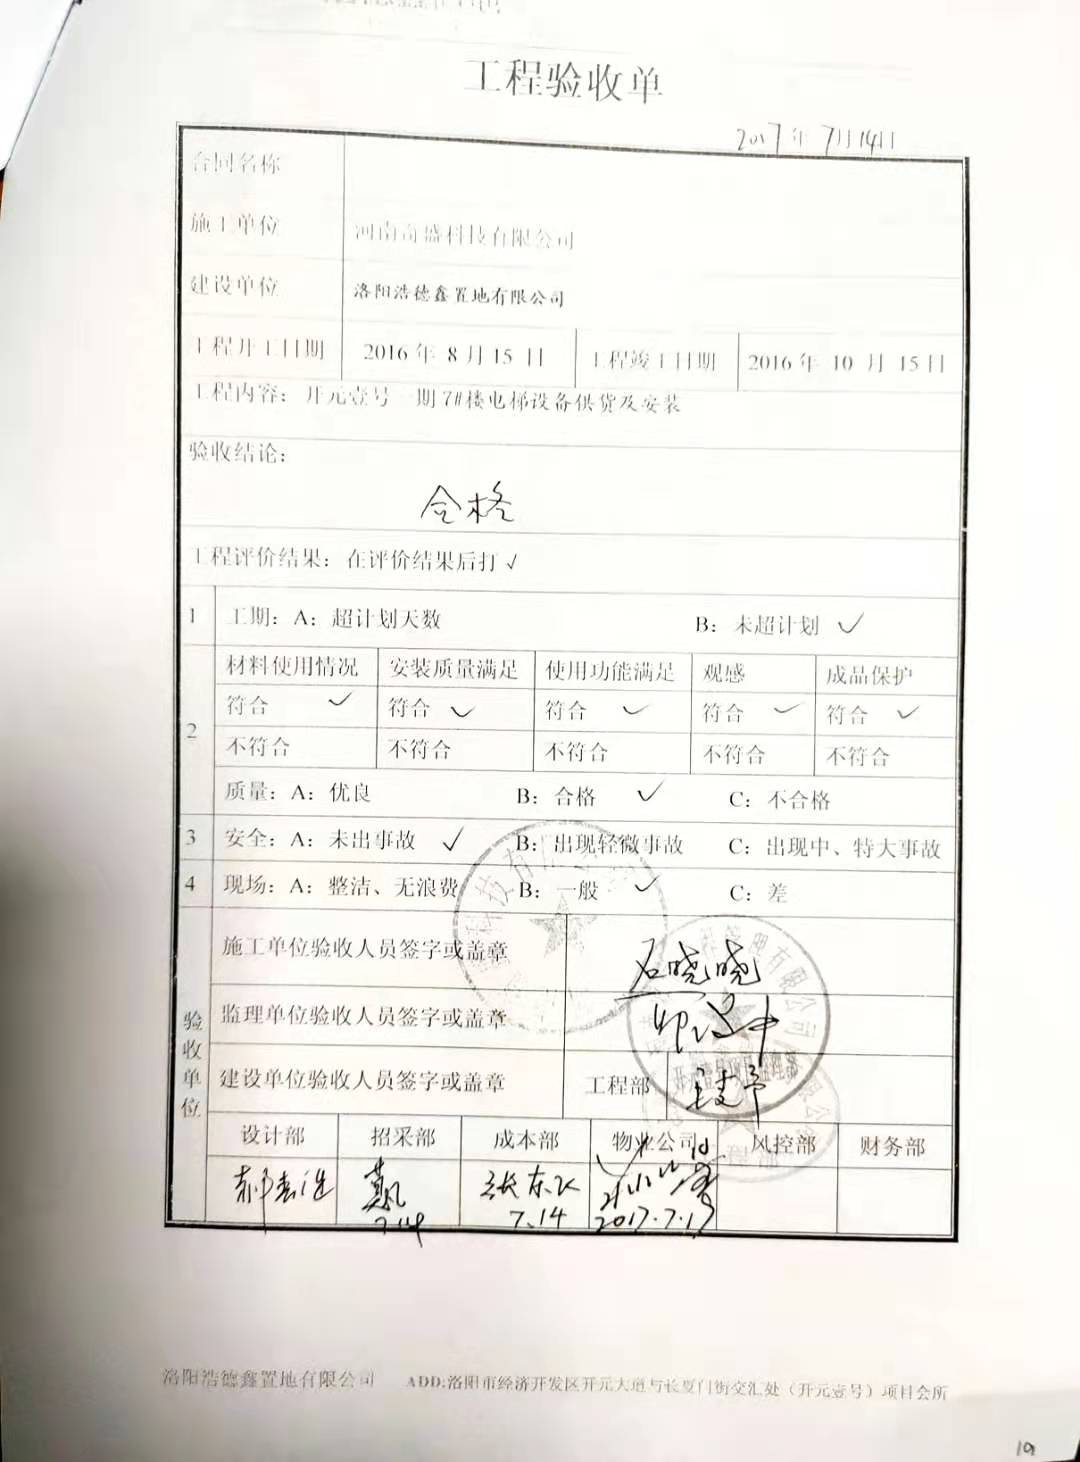 工程验收单
2017年7月14日
合同名称
施工单位 河南奇盛科技有限公司
建设单位 洛阳浩德鑫置地有限公司
工程开工日期 2016年 8月15日 工程竣工日期 2016年 10月 15日
工程内容：开元壹号一期7#楼电梯设备供货及安装
验收结论：
合格
工程评价结果：在评价结果后打√
1 工期：A：超计划天数 B：未超计划 ✓
材料使用情况 安装质量满足 使用功能满足 观感 成品保护
符合 ✓ 符合 ✓ 符合 ✓ 符合 ✓ 符合 ✓
2
不符合 不符合 不符合 不符合 不符合
质量：A：优良 B：合格 ✓ C：不合格
3 安全：A：未出事故 ✓ B：出现轻微事故 C：出现中、特大事故
4 现场：A：整洁、无浪费 B：一般 ✓ C：差
验收单位
施工单位验收人员签字或盖章 石晓晓
监理单位验收人员签字或盖章
建设单位验收人员签字或盖章 工程部
设计部 招采部 成本部 物业公司 风控部 财务部
张东飞
7.14 7.14 2017.7.17
洛阳浩德鑫置地有限公司 ADD:洛阳市经济开发区开元大道与长厦门街交汇处（开元壹号）项目会所
19